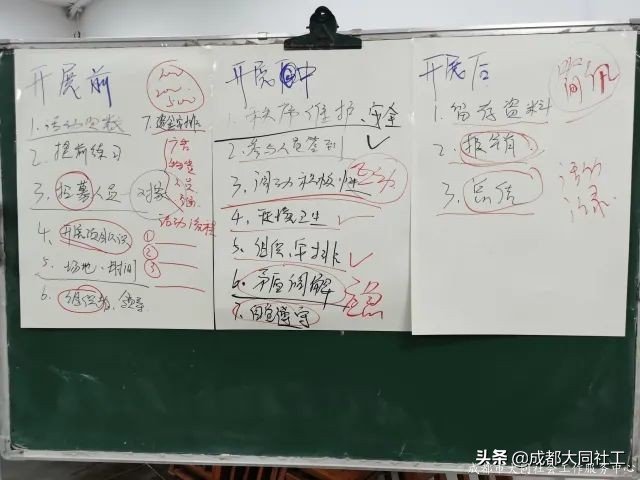 开展前
1.活动
2.提前练习
3.招募人员
对象
4、
5、场地、时间
6、组织者、领导
7.资金安排
200
200
500
广告
物资
人员
活动流程
①
②
③
开展中
1.秩序维护、安全
2.参与人员签到
3.调动积极性
互动
4、环境卫生
5、组织、安排
6、矛盾调解
7、
开展后
1.留存资料
2、报销
3、总结
简讯
活动
记录
头条 @成都大同社工
成都市大同社会工作服务中心